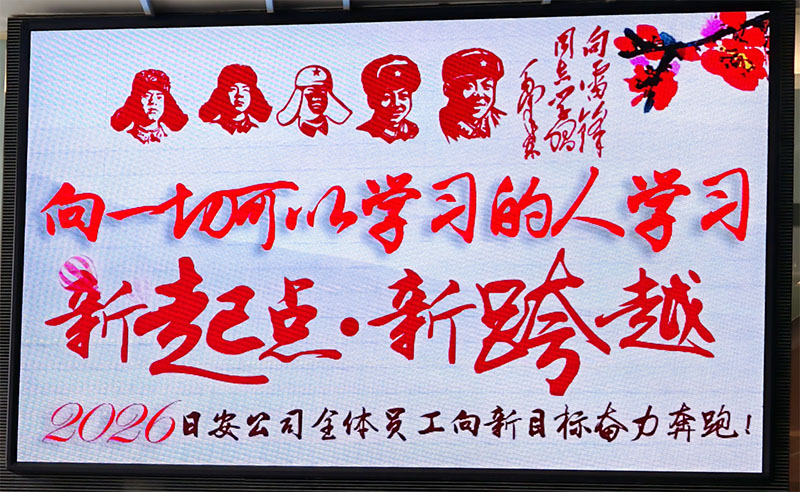 向雷锋
同志学习
毛泽东
向一切可以学习的人学习
新起点·新跨越
2026日安公司全体员工向新目标奋力奔跑！